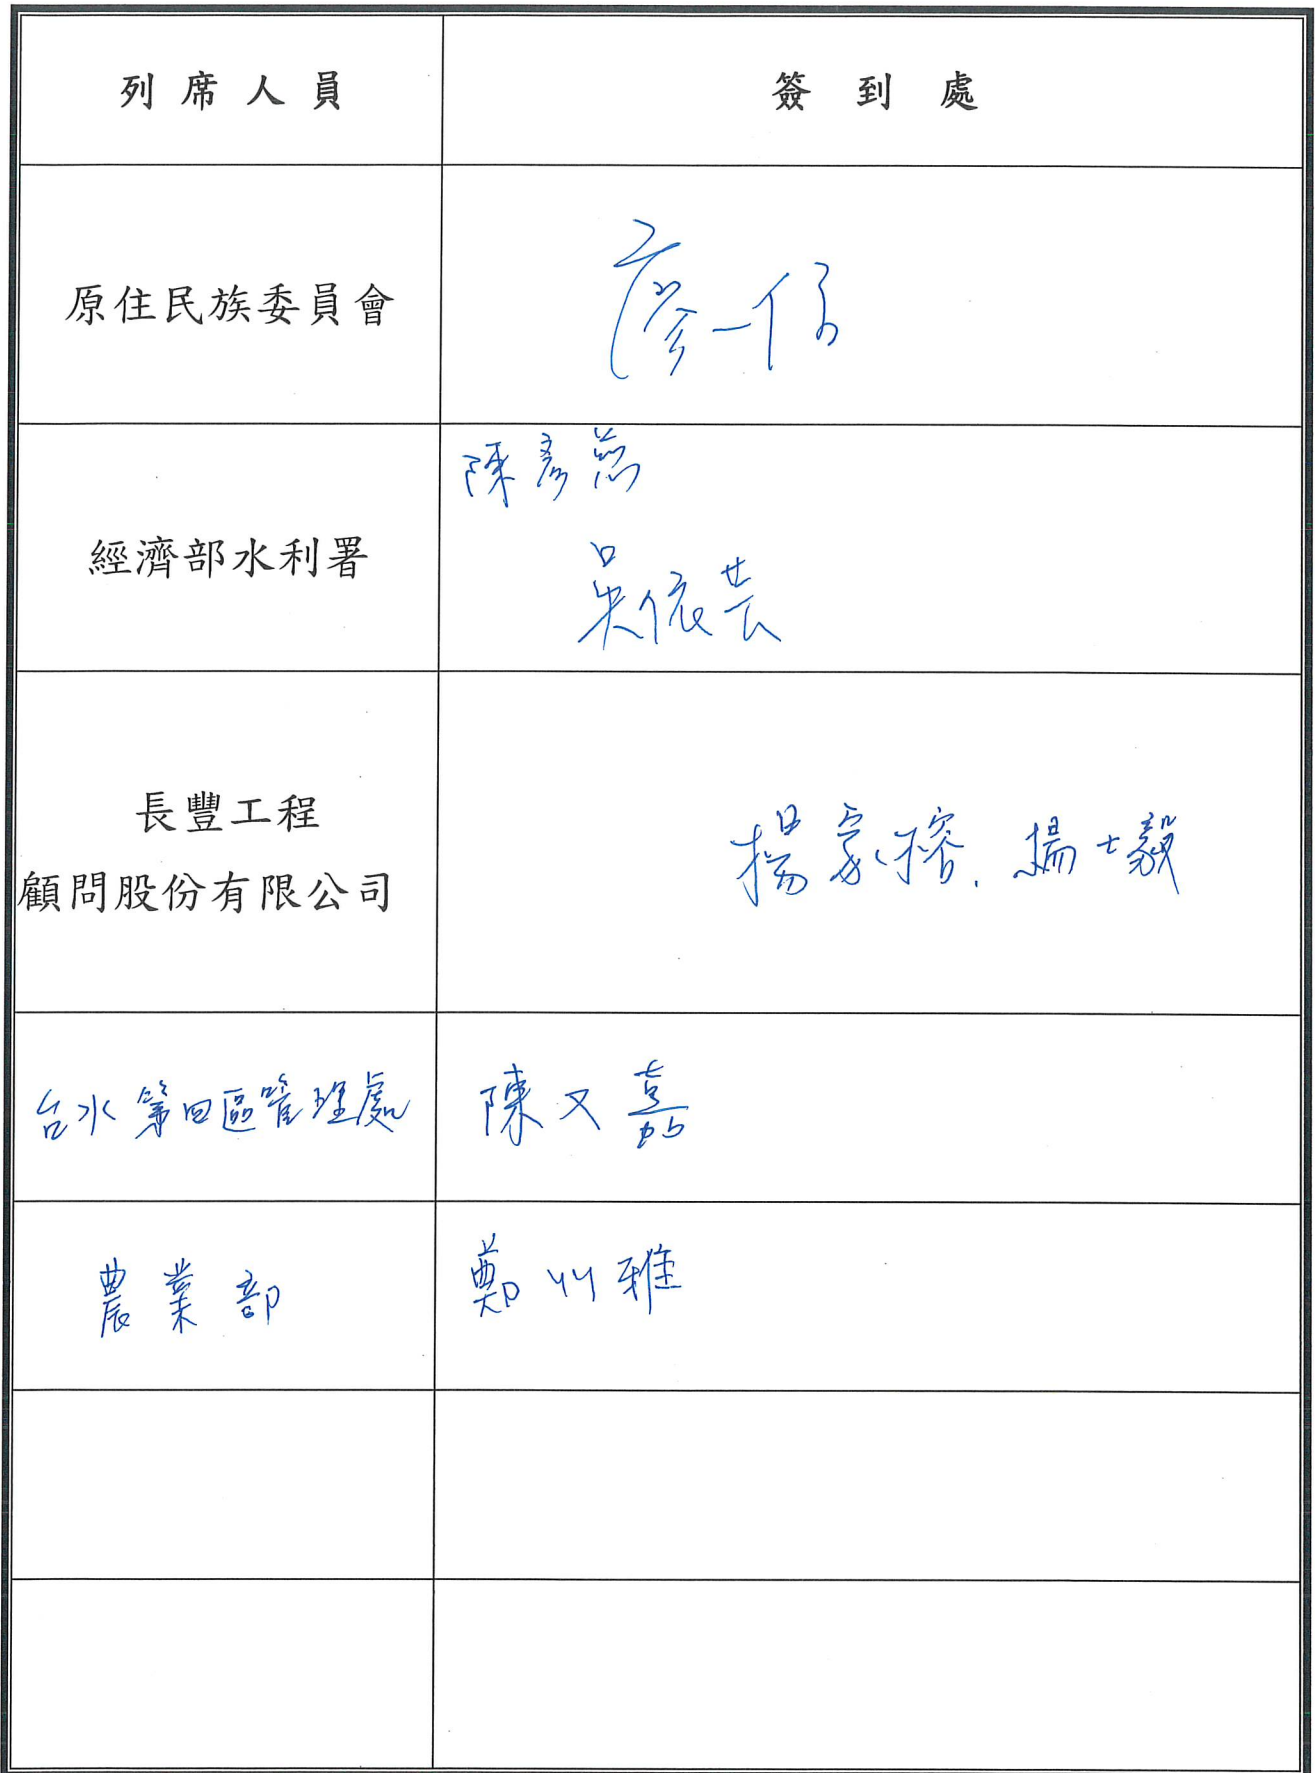 列席人員 簽到處
原住民族委員會 廖一信
經濟部水利署 陳彥
吳依芸
長豐工程
顧問股份有限公司 楊家榕. 楊士毅
台水第四區管理處 陳又嘉
農業部 鄭雅